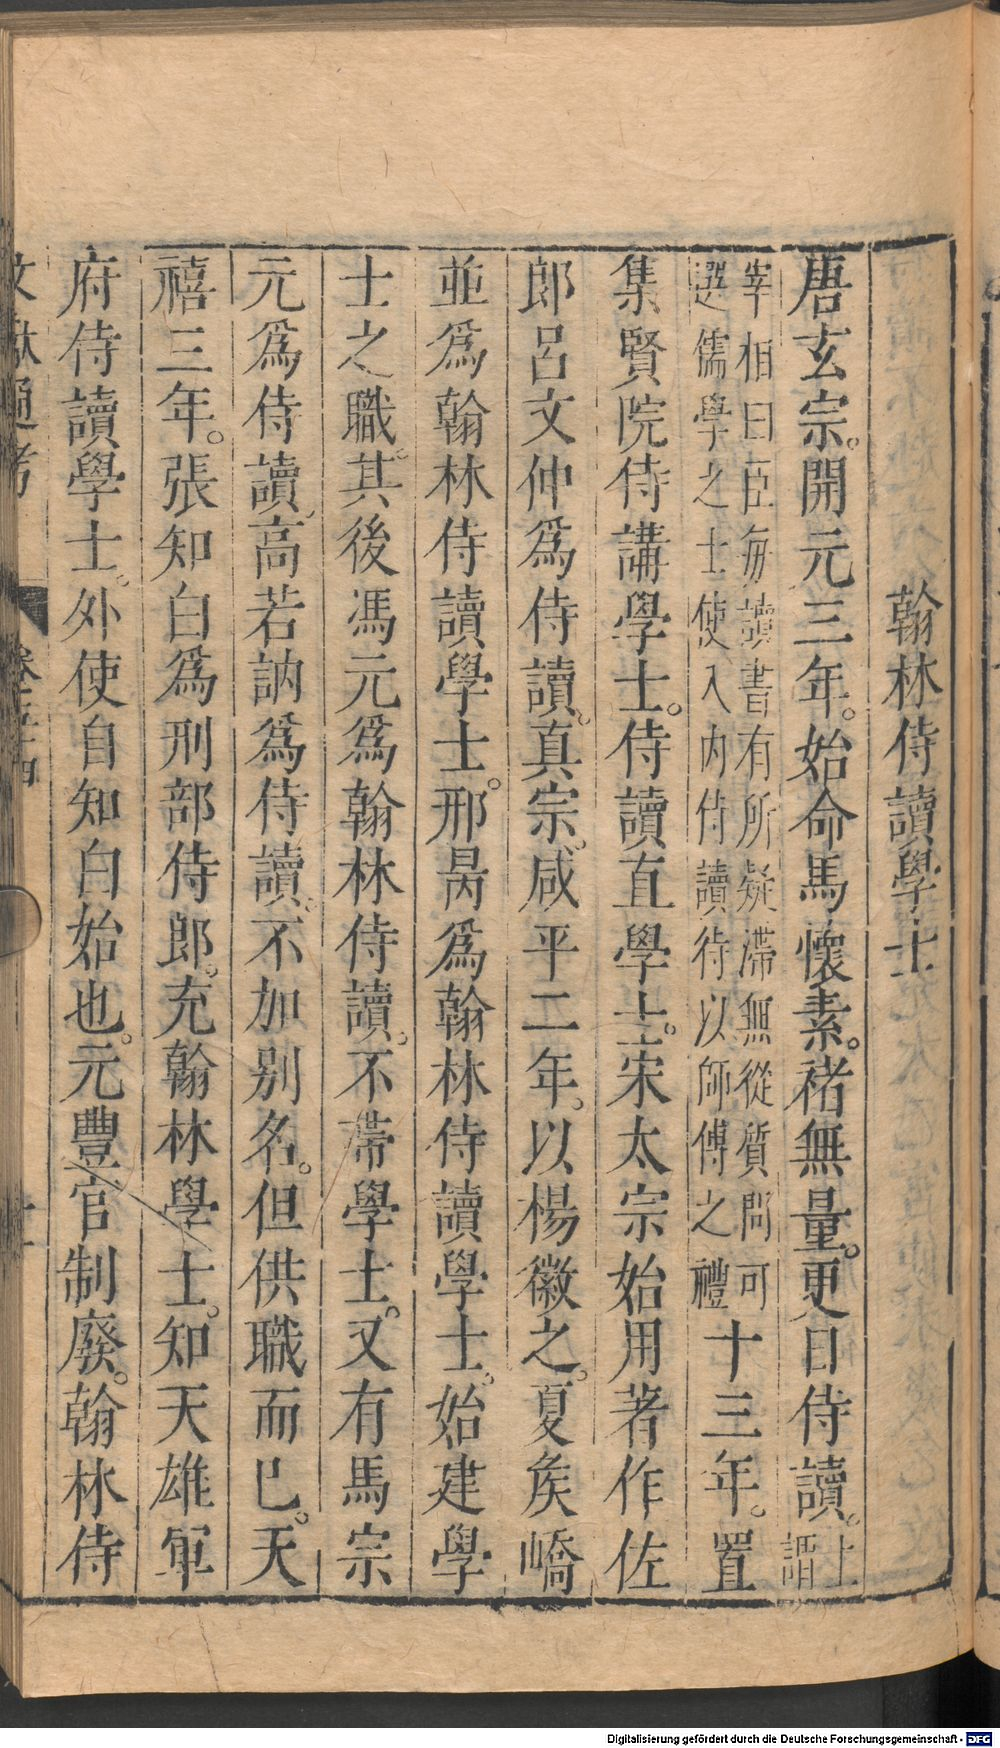 翰林侍讀學士
唐玄宗。開元三年。始命馬懷素。褚無量。更日侍讀。上謂
宰相曰臣每讀書有所疑滯無從質問可
選儒學之士使入內侍讀待以師傅之禮十三年。置
集賢院侍講學士。侍讀直學士。宋太宗始用著作佐
郎呂文仲爲侍讀。真宗。咸平二年。以楊徽之。夏矦嶠
並爲翰林侍讀學士。邢昺爲翰林侍讀學士。始建學
士之職。其後馮元爲翰林侍讀。不帶學士。又有馬宗
元爲侍讀。高若訥爲侍讀。不加别名。但供職而已。天
禧三年。張知白爲刑部侍郎。充翰林學士。知天雄軍
府侍讀學士。外使自知白始也。元豐官制廢。翰林侍
文獻通考 卷五十四